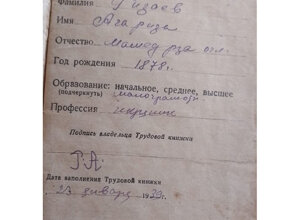 Фамилия Рзаев
Имя Агариза
Отчество Мамед рза огл.
Год рождения 1878 г.
Образование: начальное, среднее, высшее
(подчеркнуть) малограмот
Профессия икрянник
Подпись владельца Трудовой книжки
Р.А.
Дата заполнения Трудовой книжки
23 января 1939 г.